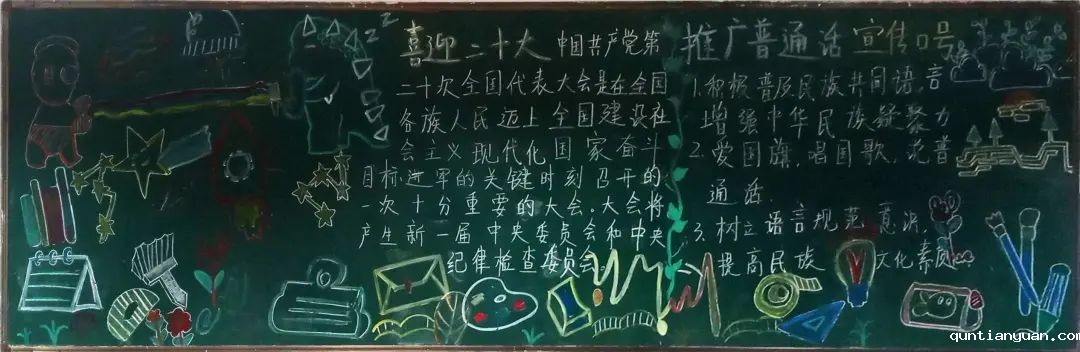 喜迎二十大 中国共产党第
二十次全国代表大会是在全国
各族人民迈上全国建设社
会主义现代化国家奋斗
目标进军的关键时刻召开的
一次十分重要的大会。大会将
产生新一届中央委员会和中央
纪律检查委员会
推广普通话宣传口号
1.积极普及民族共同语,言
增强中华民族凝聚力
2.爱国旗,唱国歌,说普
通话。
3.树立语言规范意识,
提高民族文化素质.
quntianyuan.com